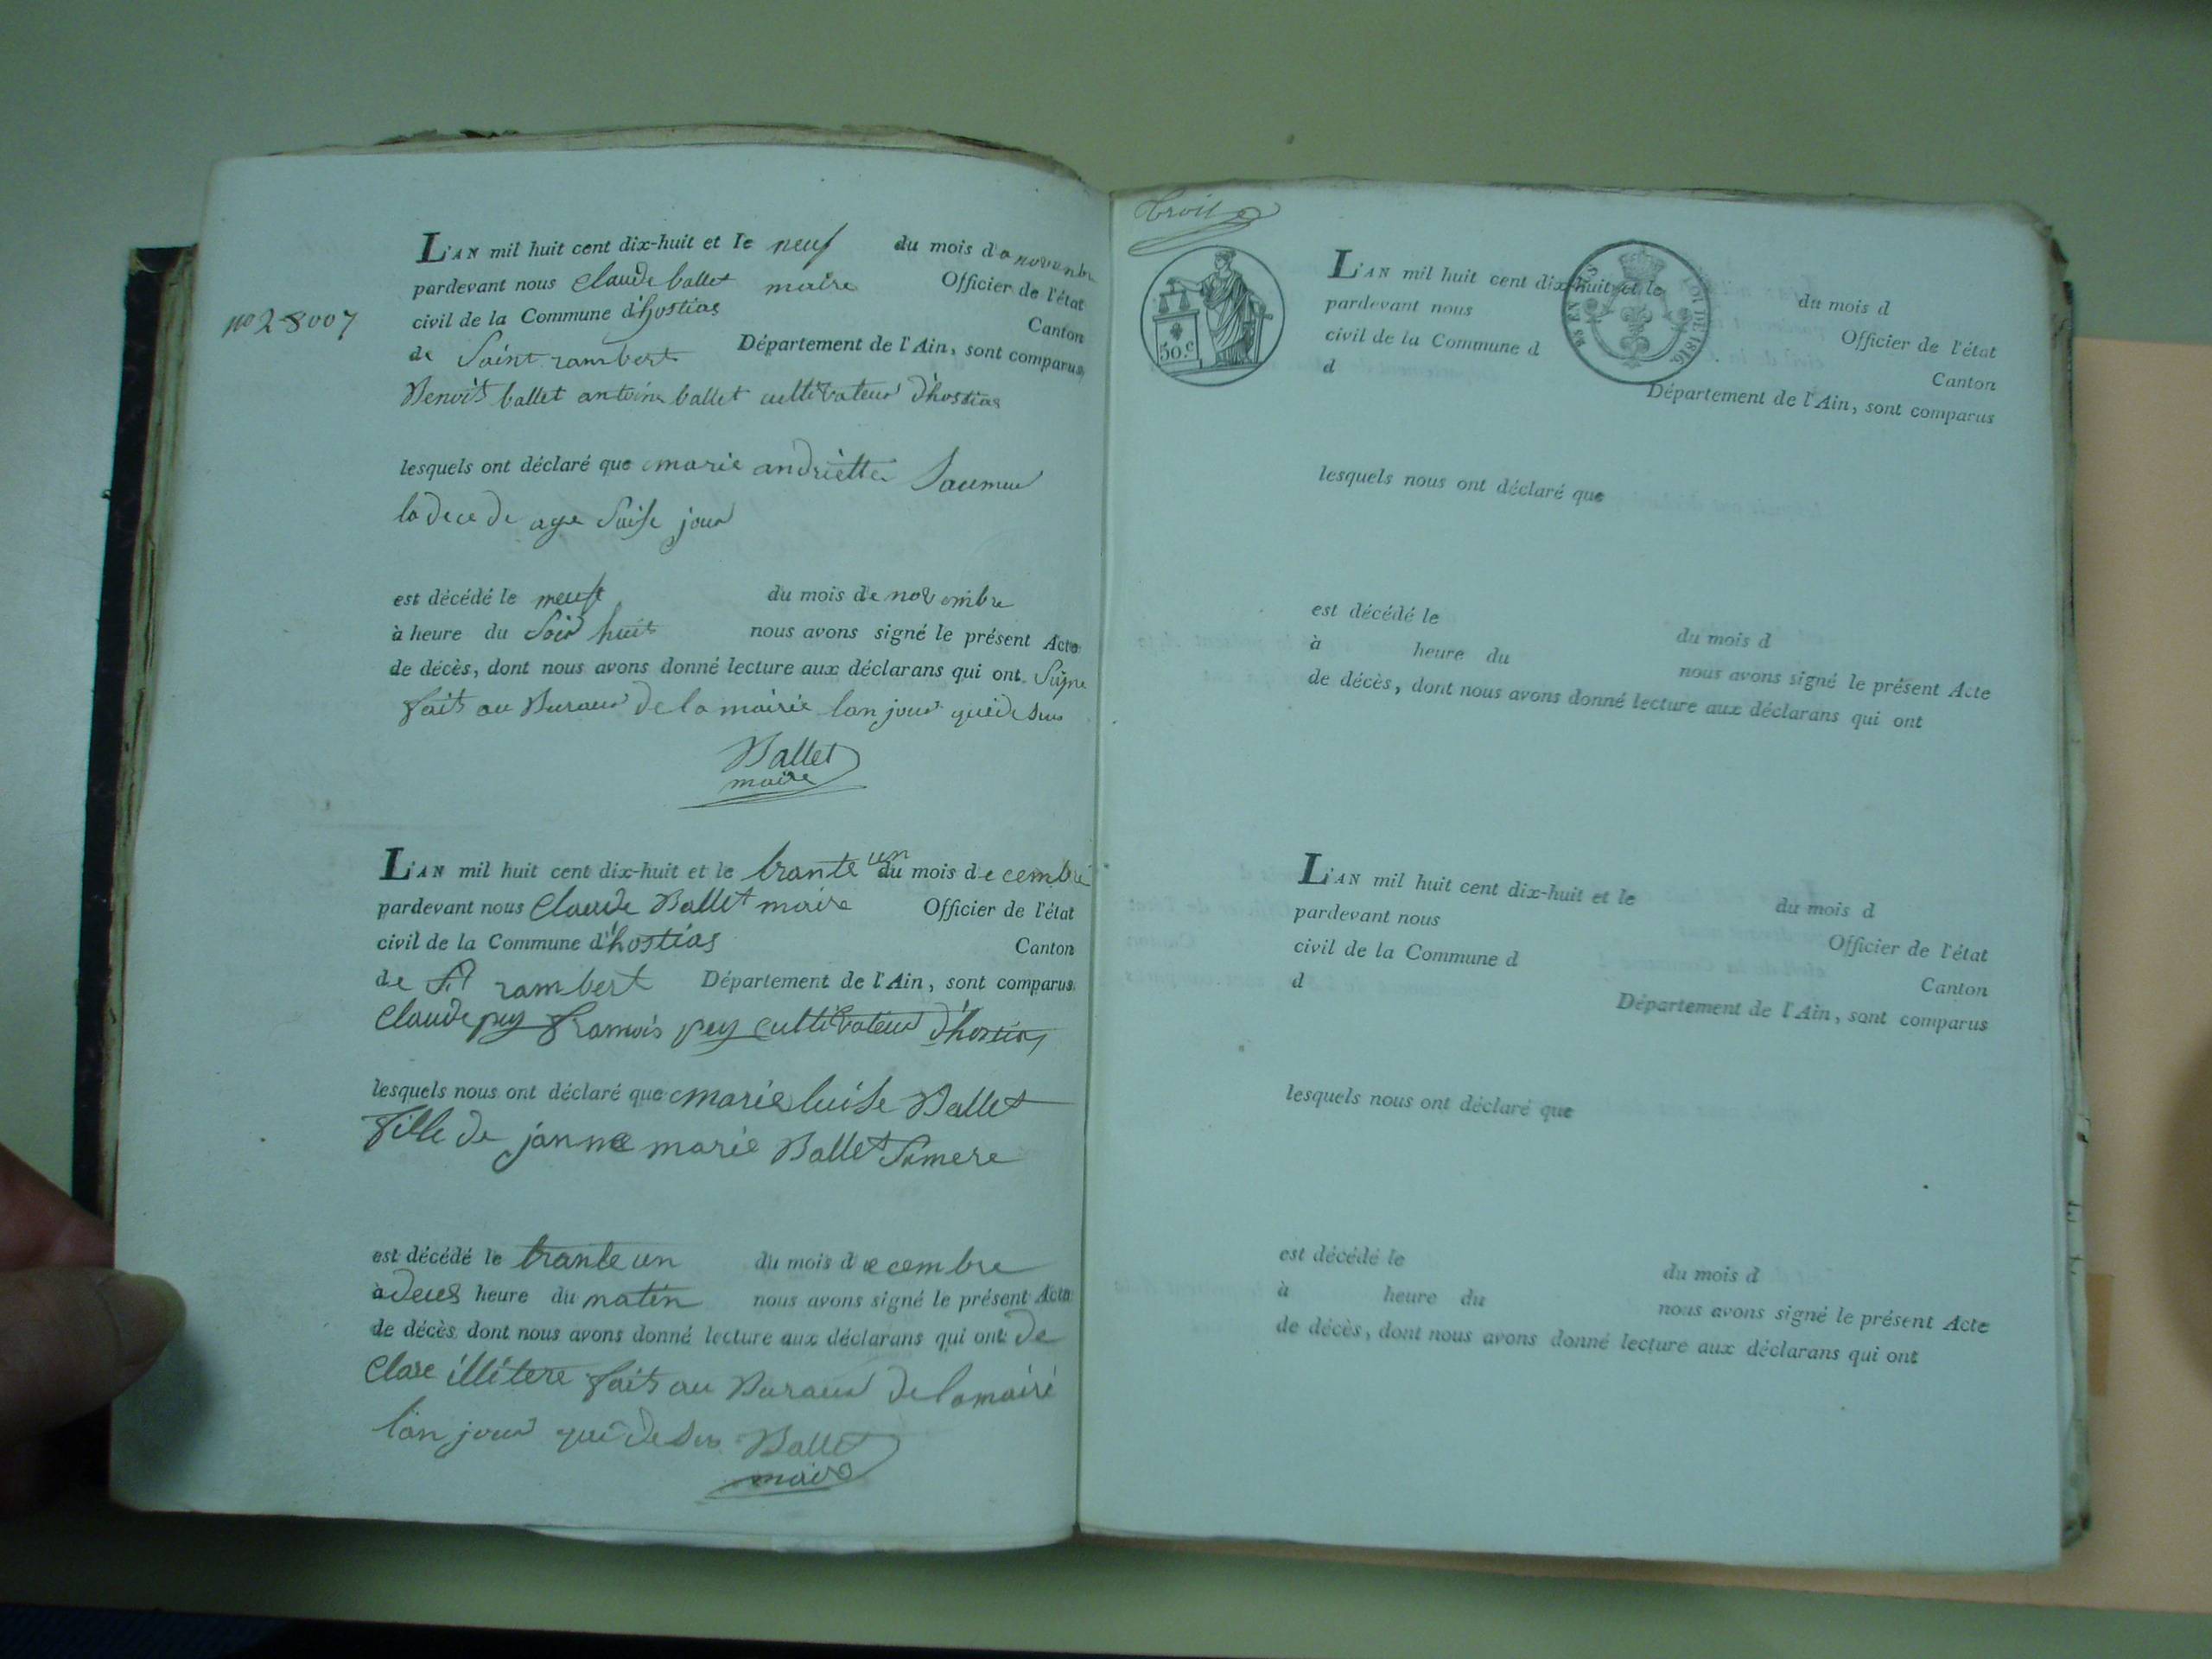 no 2-8007
L'AN mil huit cent dix-huit et le neuf du mois d'a novembre
pardevant nous Claude ballet maire Officier de l'état
civil de la Commune d'hostias Canton
de Saint rambert Département de l'Ain, sont comparus
Benoit ballet antoine ballet cultivateur d'hostias
lesquels ont déclaré que marie andriette
la dece de age Saise jour
est décédé le neuf du mois de novembre
à heure du Soir huit nous avons signé le présent Acte
de décès, dont nous avons donné lecture aux déclarans qui ont Signe
fait au Buraud de la mairie lan jour quedesus
Ballet
maire
L'AN mil huit cent dix-huit et le trante un du mois decembre
pardevant nous Claude Ballet maire Officier de l'état
civil de la Commune d'hostias Canton
de St rambert Département de l'Ain, sont comparus
Claude pey framois pey cultivateur d'hostias
lesquels nous ont déclaré que marie luise Ballet
fille de janne marie Ballet Samere
est décédé le trante un du mois decembre
à deus heure du matin nous avons signé le présent Acte
de décès dont nous avons donné lecture aux déclarans qui ont de
Clare illitere fait au Buraud de lamairi
lan jour quedesus Ballet
maire
50.c
LOI DE 1816.
L'AN mil huit cent dix-huit et le du mois d
pardevant nous Officier de l'état
civil de la Commune d Canton
d Département de l'Ain, sont comparus
lesquels nous ont déclaré que
est décédé le du mois d
à heure du nous avons signé le présent Acte
de décès, dont nous avons donné lecture aux déclarans qui ont
L'AN mil huit cent dix-huit et le du mois d
pardevant nous Officier de l'état
civil de la Commune d Canton
d Département de l'Ain, sont comparus
lesquels nous ont déclaré que
est décédé le du mois d
à heure du nous avons signé le présent Acte
de décès, dont nous avons donné lecture aux déclarans qui ont